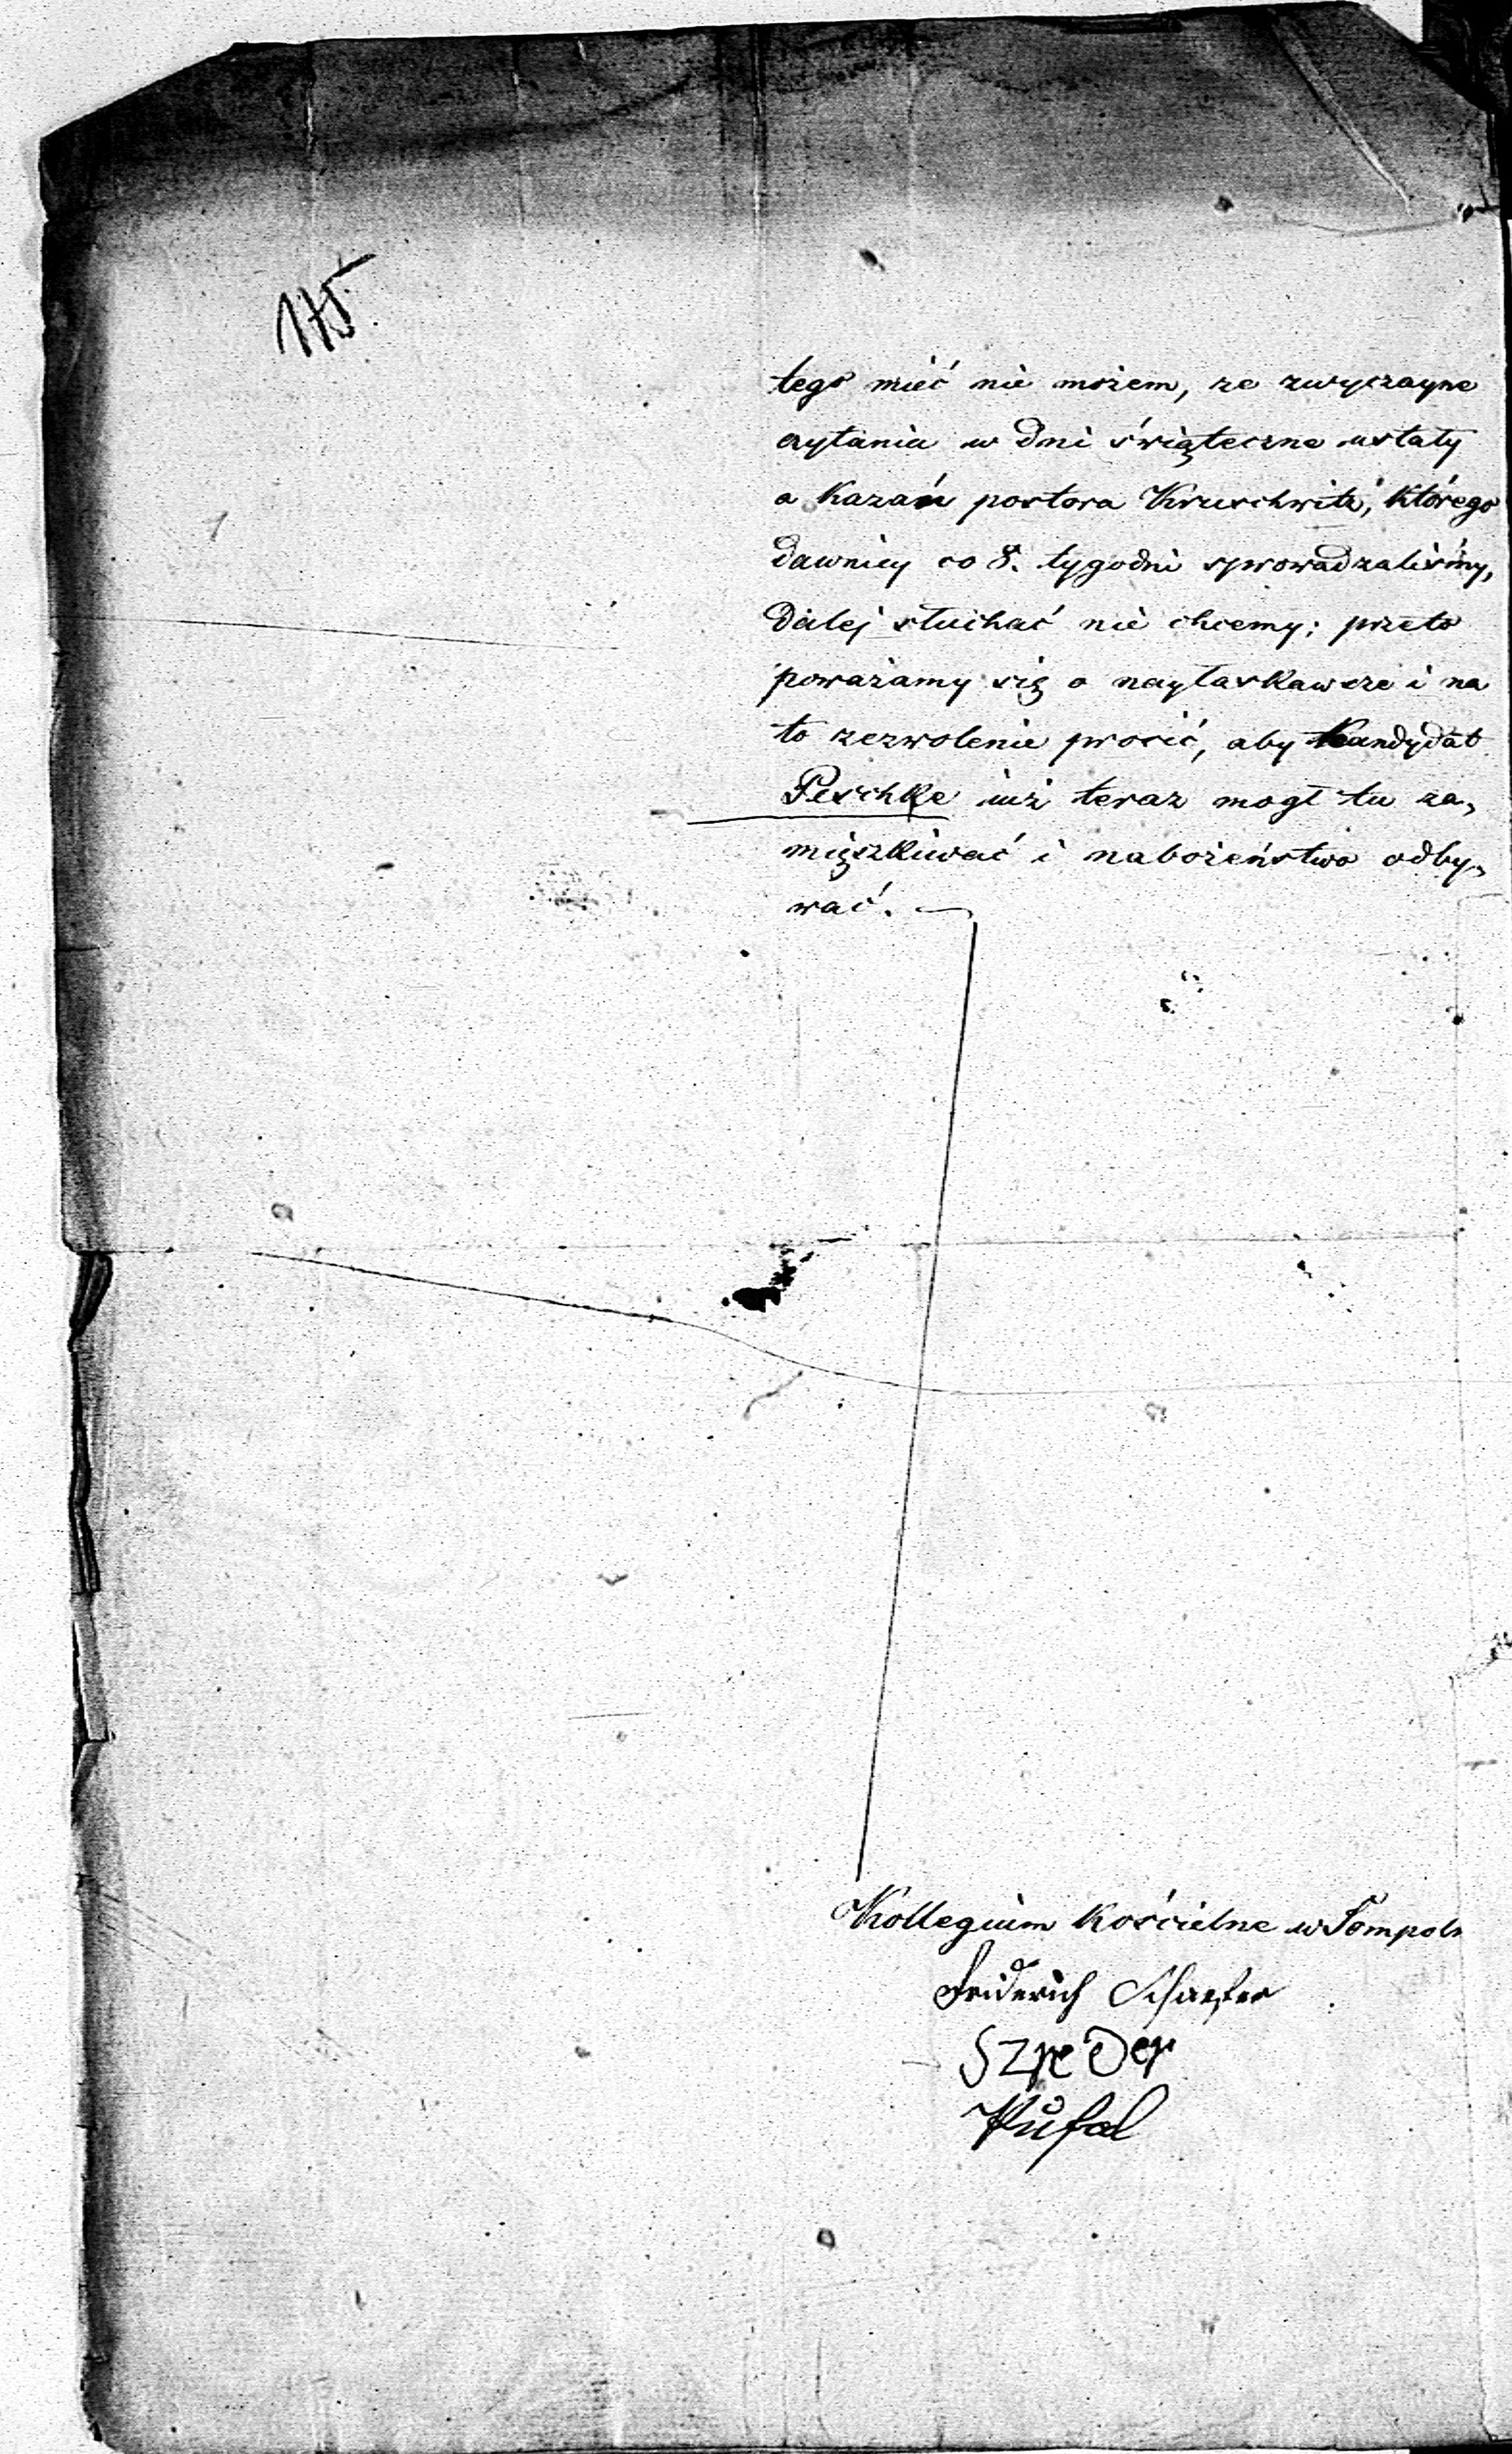 175.
tego mieć nie możem, ze zwyczayne
czytania w dni świąteczne ustały
a Kazań pastora Kruschwitz, którego
dawniey co 8. tygodni sprowadzaliśmy,
dalej słuchać nie chcemy; przeto
poważamy się o nayłaskawsze i na
to zezwolenie prosić, aby Kandydat
Peschke już teraz mogł tu za,
mięszkiwać i nabożeństwo odby,
wać.
Kollegium Kościelne w Sompoln
Friderich Schaefer
Szreder
Kufal